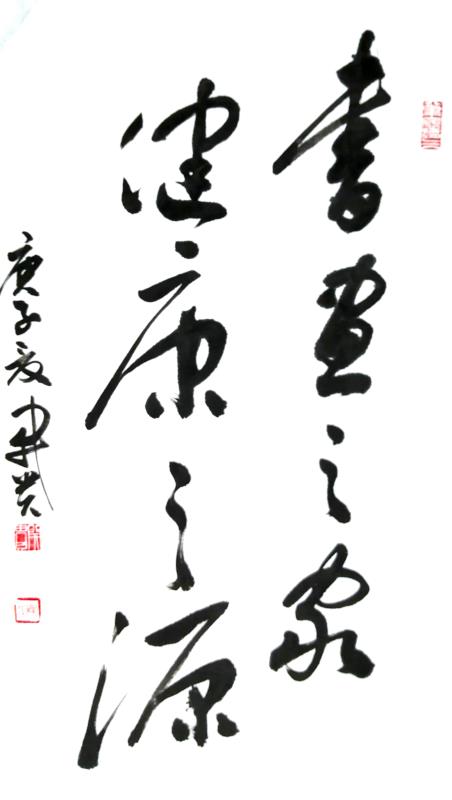 書畫之家
健康之源
庚子夏